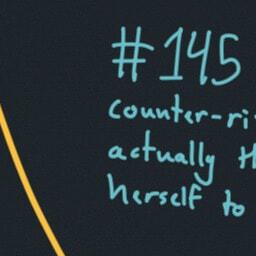 #145
counter-ri
actually
herself to